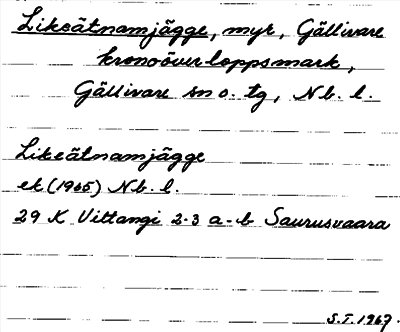 Likeätnamjägge, myr, Gällivare
kronoöverloppsmark,
Gällivare sn o. tg, Nb. l.
Likeätnamjägge
ek (1965) Nb. l.
29 K Vittangi 2-3 a-b Saurusvaara
S.T. 1967.